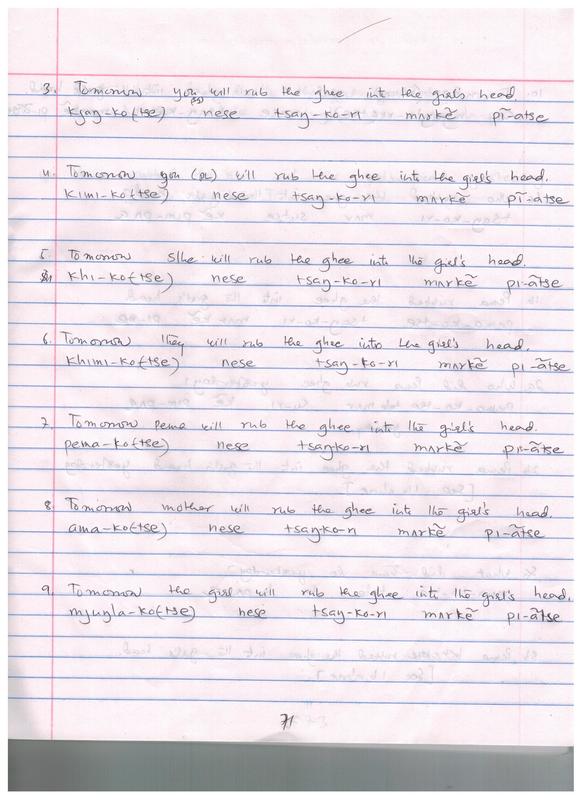 3. Tomorrow you (sg) will rub the ghee into the girl's head.
kjaŋ-ko(tse) nese tsaŋ-ko-ri mʌrkẽ pĩ-atse
4. Tomorrow you (pl) will rub the ghee into the girl's head.
kimi-ko(tse) nese tsaŋ-ko-ri mʌrkẽ pĩ-atse
5. Tomorrow s/he will rub the ghee into the girl's head
khi-ko(tse) nese tsaŋ-ko-ri mʌrkẽ pi-ãtse
6. Tomorrow they will rub the ghee into the girl's head.
khimi-ko(tse) nese tsaŋ-ko-ri mʌrkẽ pi-ãtse
7. Tomorrow pema will rub the ghee into the girl's head.
pema-ko(tse) nese tsaŋko-ri mʌrkẽ pi-ãtse
8. Tomorrow mother will rub the ghee into the girl's head.
ama-ko(tse) nese tsaŋko-ri mʌrkẽ pi-ãtse
9. Tomorrow the girl will rub the ghee into the girl's head.
mjuŋla-ko(tse) nese tsaŋ-ko-ri mʌrkẽ pi-ãtse
71